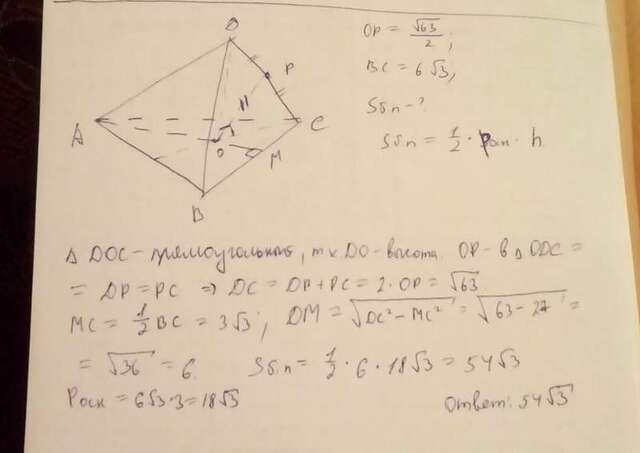 D
P
H
A
C
O
M
B
OP = √63/2;
BC = 6√3,
Sбп - ?
Sбп = 1/2 · Pосн · h
Δ DOC - прямоугольный, т.к DO - высота. OP - в Δ ODC =
= DP = PC ⇒ DC = DP + PC = 2 · OP = √63
MC = 1/2 BC = 3√3; DM = √DC² - MC² = √63 - 27 =
= √36 = 6. Sбп = 1/2 · 6 · 18√3 = 54√3
Pосн = 6√3 · 3 = 18√3
Ответ: 54√3